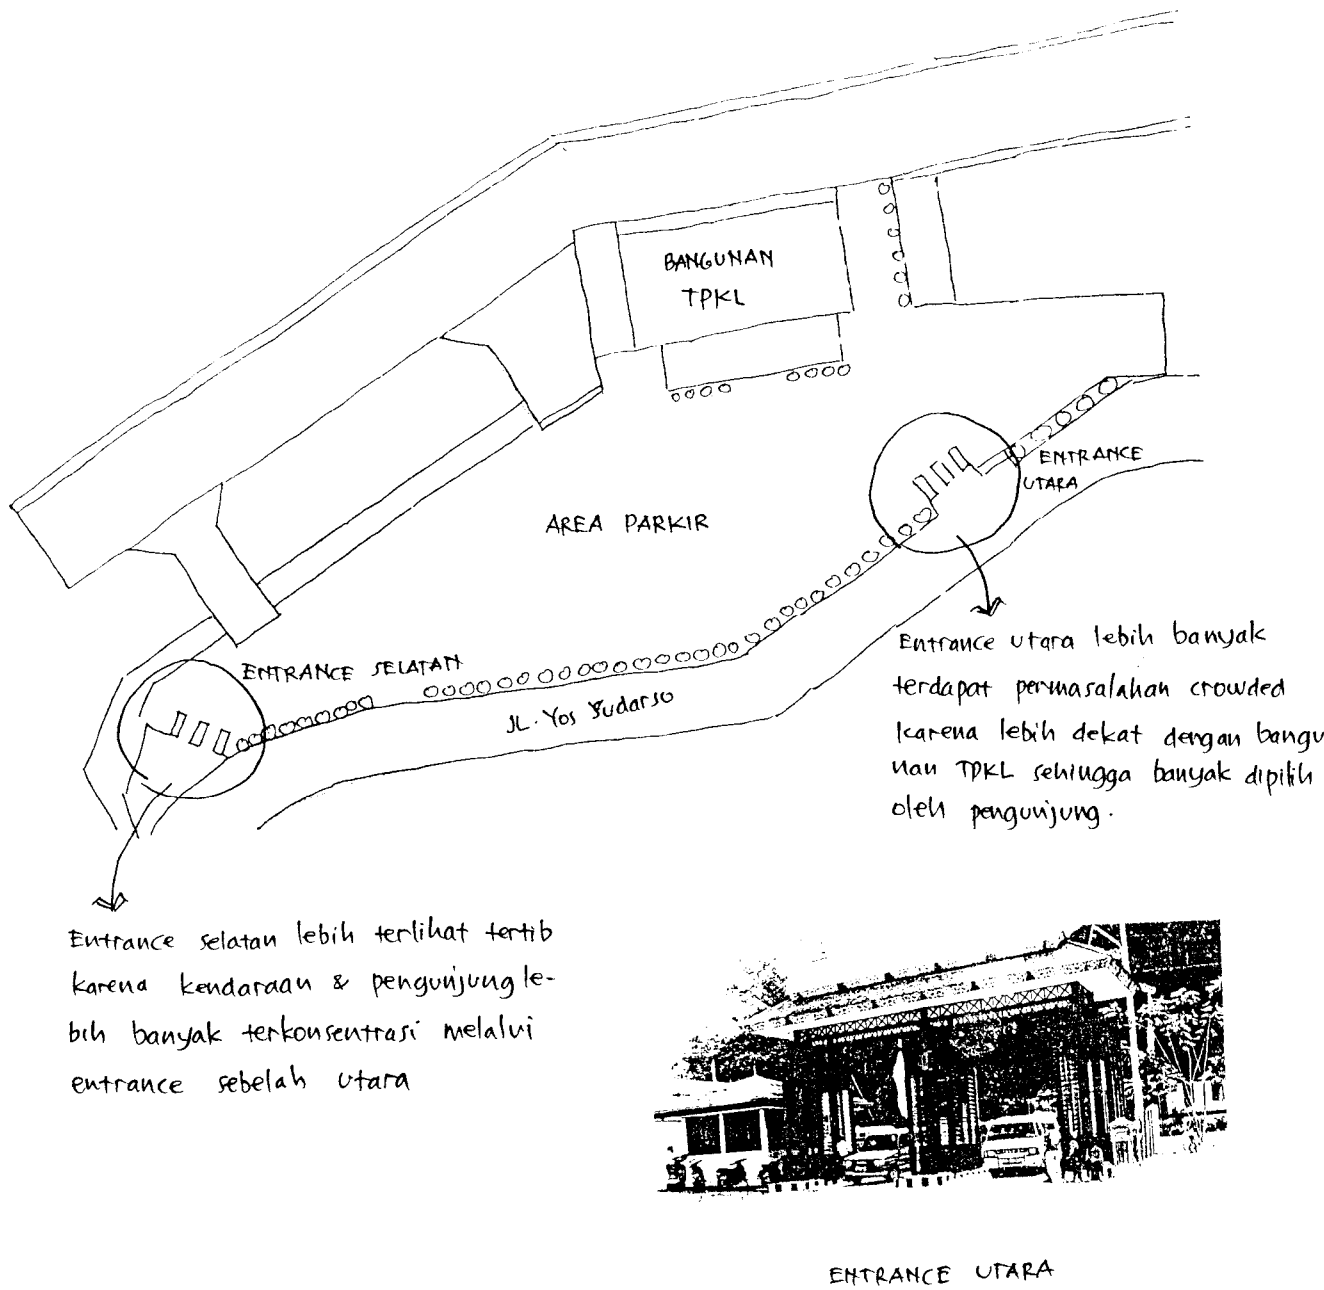 BANGUNAN
TPKL
ENTRANCE
UTARA
AREA PARKIR
ENTRANCE SELATAN
JL. Yos Sudarso
Entrance utara lebih banyak
terdapat permasalahan crowded
karena lebih dekat dengan bangu
nan TPKL sehingga banyak dipilih
oleh pengunjung.
Entrance selatan lebih terlihat tertib
karena kendaraan & pengunjung le-
bih banyak terkonsentrasi melalui
entrance sebelah utara
ENTRANCE UTARA